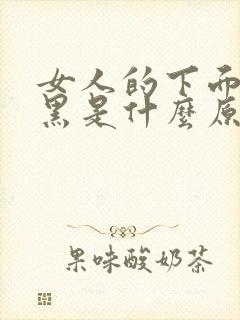 女人的下而
黑是什麼原
果味酸奶茶